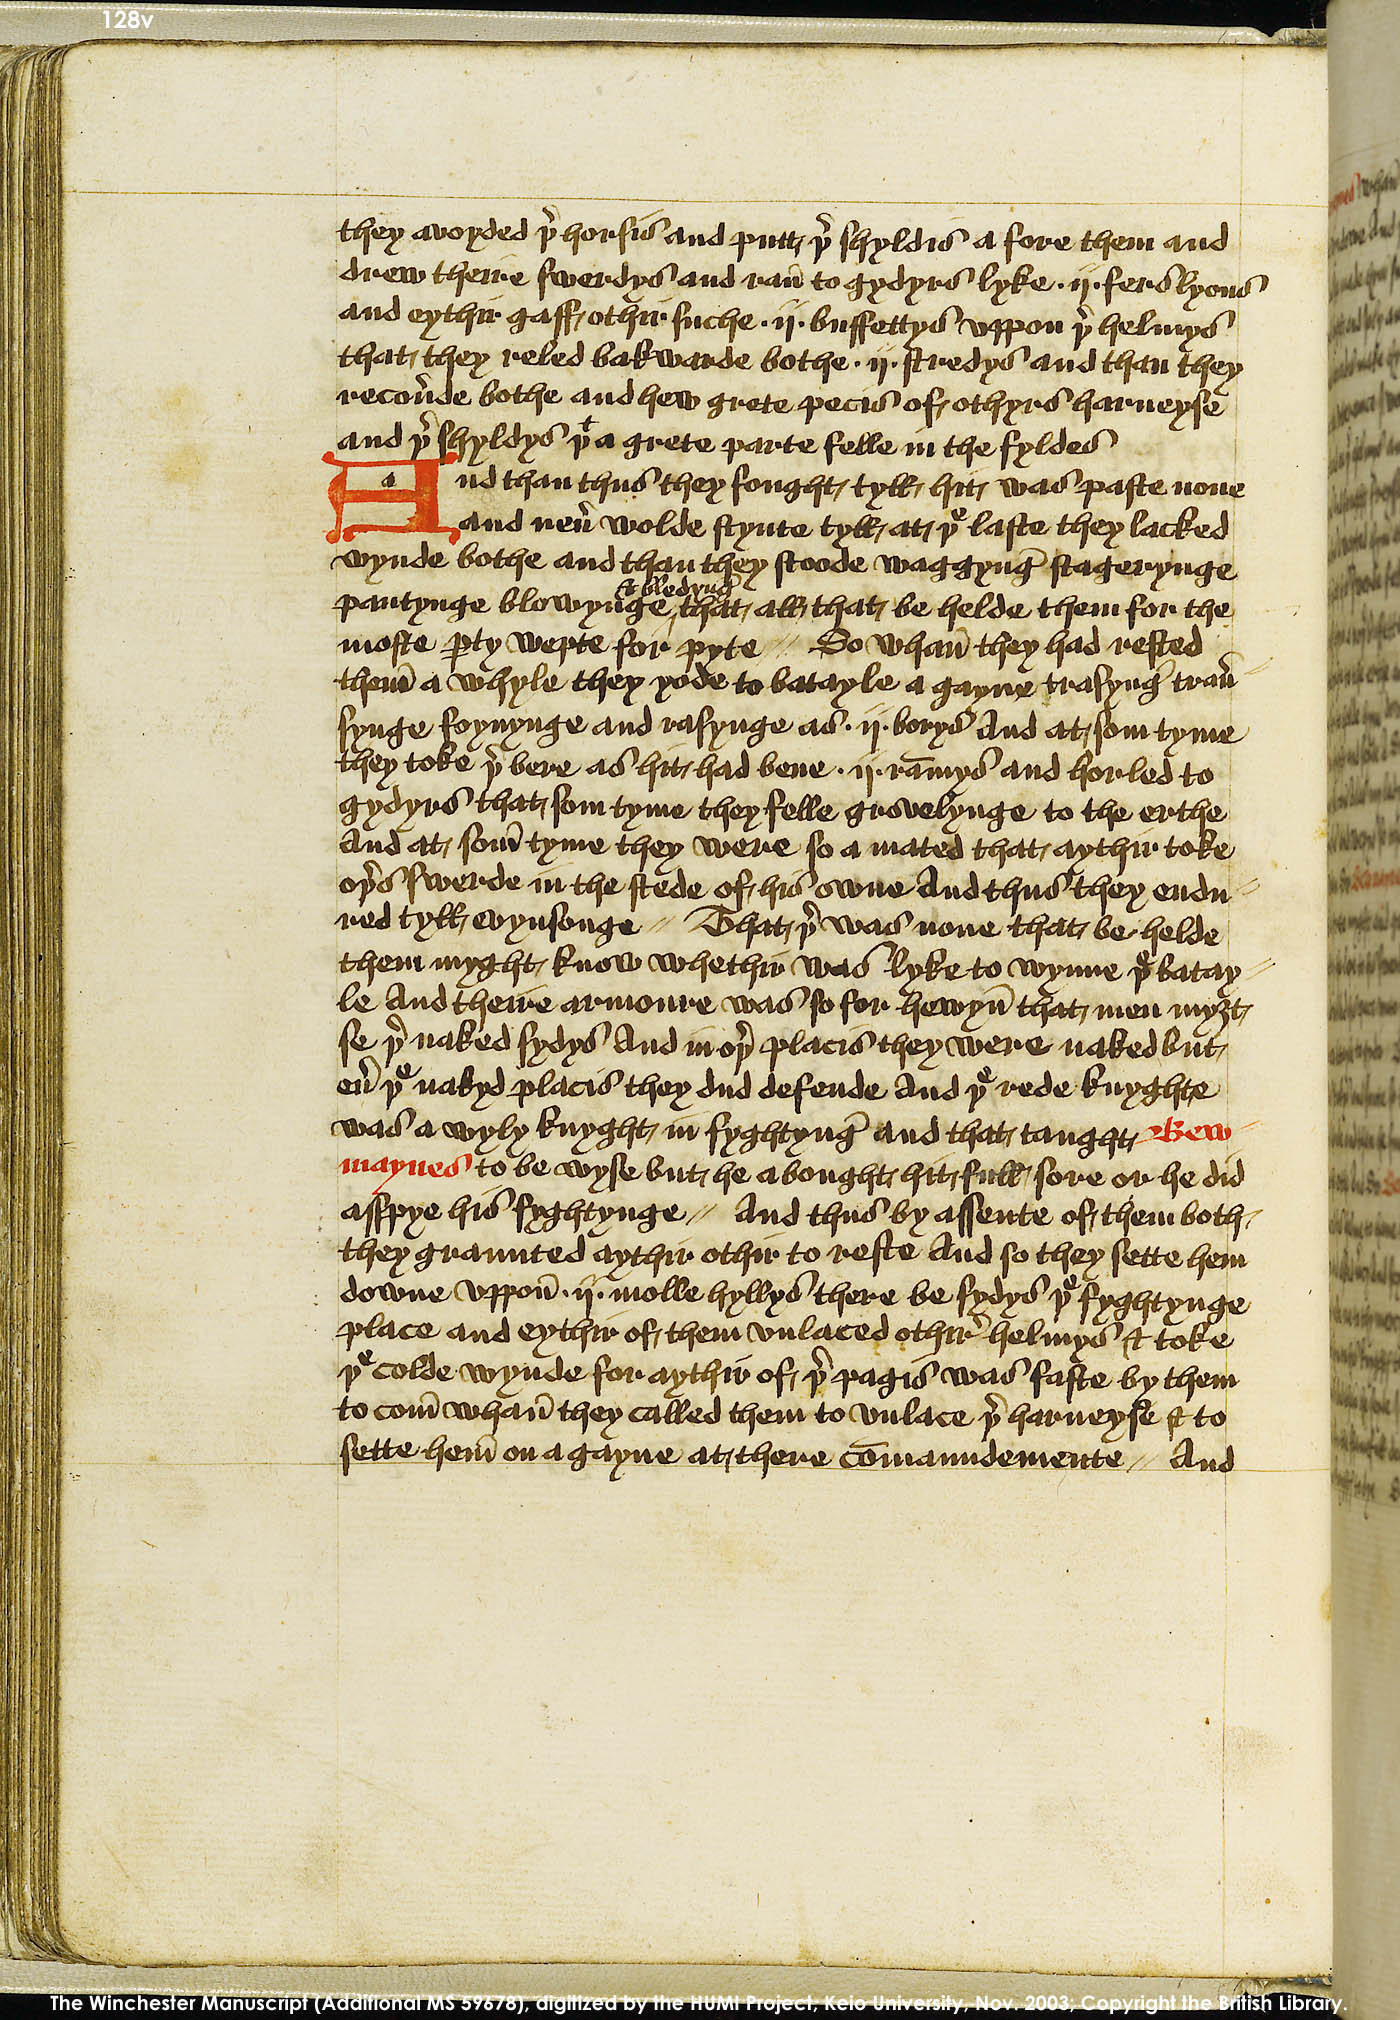 128v
they avoyded þ̾ horsis and putt þ̾ shyldis a fore them and
drew theire swerdys and ran̄ to gydyrs lyke · ij · fers lyons
and eythir gaff othir suche · ij · buffettys vppon þ̾ helmys
that they reled bakwarde bothe · ij · stredys and than they
recou̾de bothe and hew grete pecis of othyrs harneyse
and þ̾ shyldys þᵗ a grete parte felle in the fyldes
And than thus they fought tyll hit was paste none
and neu̾ wolde stynte tyll at þᵉ laste they lacked
wynde bothe and than they stoode waggynḡ stagerynge
& bledynḡ
pantynge blowynge that all that be helde them for the
moste ꝑty wepte for pyte // So whan̄ they had rested
them̄ a whyle they yode to batayle a gayne trasynḡ trau̾
synge foynynge and rasynge as · ij · borys And at som tyme
they toke þ̾ bere as hit had bene · ij · rām̄ys and horled to
gydyrs that som tyme they felle grovelynge to the erthe
And at som̄ tyme they were so a mated that aythir toke
oþ̾s swerde in the stede of his owne And thus they endu //
red tyll evynsonge // That þ̾ was none that be helde
them myght know whethir was lyke to wynne þᵉ batay //
le And theire armoure was so for hewyn̄ that men myȝt
se þ̾ naked sydys And in oþ̾ placis they were naked but
eu̾ þᵉ nakyd placis they dud defende And þᵉ rede knyghte
was a wyly knyght in fyghtynḡ and that taught Bew //
maynes to be wyse but he abought hit full sore or he did
asspye his fyghtynge // And thus by assente of them both
they graunted aythir othir to reste And so they sette hem
downe vppon̄ · ij · molle hyllys there be sydys þᵉ fyghtynge
place and eythir of them vnlaced othir̾ helmys & toke
þᵉ colde wynde for aythir of þ̾ pagis was faste by them
to com̄ whan̄ they called them to vnlace þ̾ harneyse & to
sette hem̄ on a gayne at there cōmaundemente // And
The Winchester Manuscript (Additional MS 59678), digitized by the HUMI Project, Keio University, Nov. 2003; Copyright the British Library.